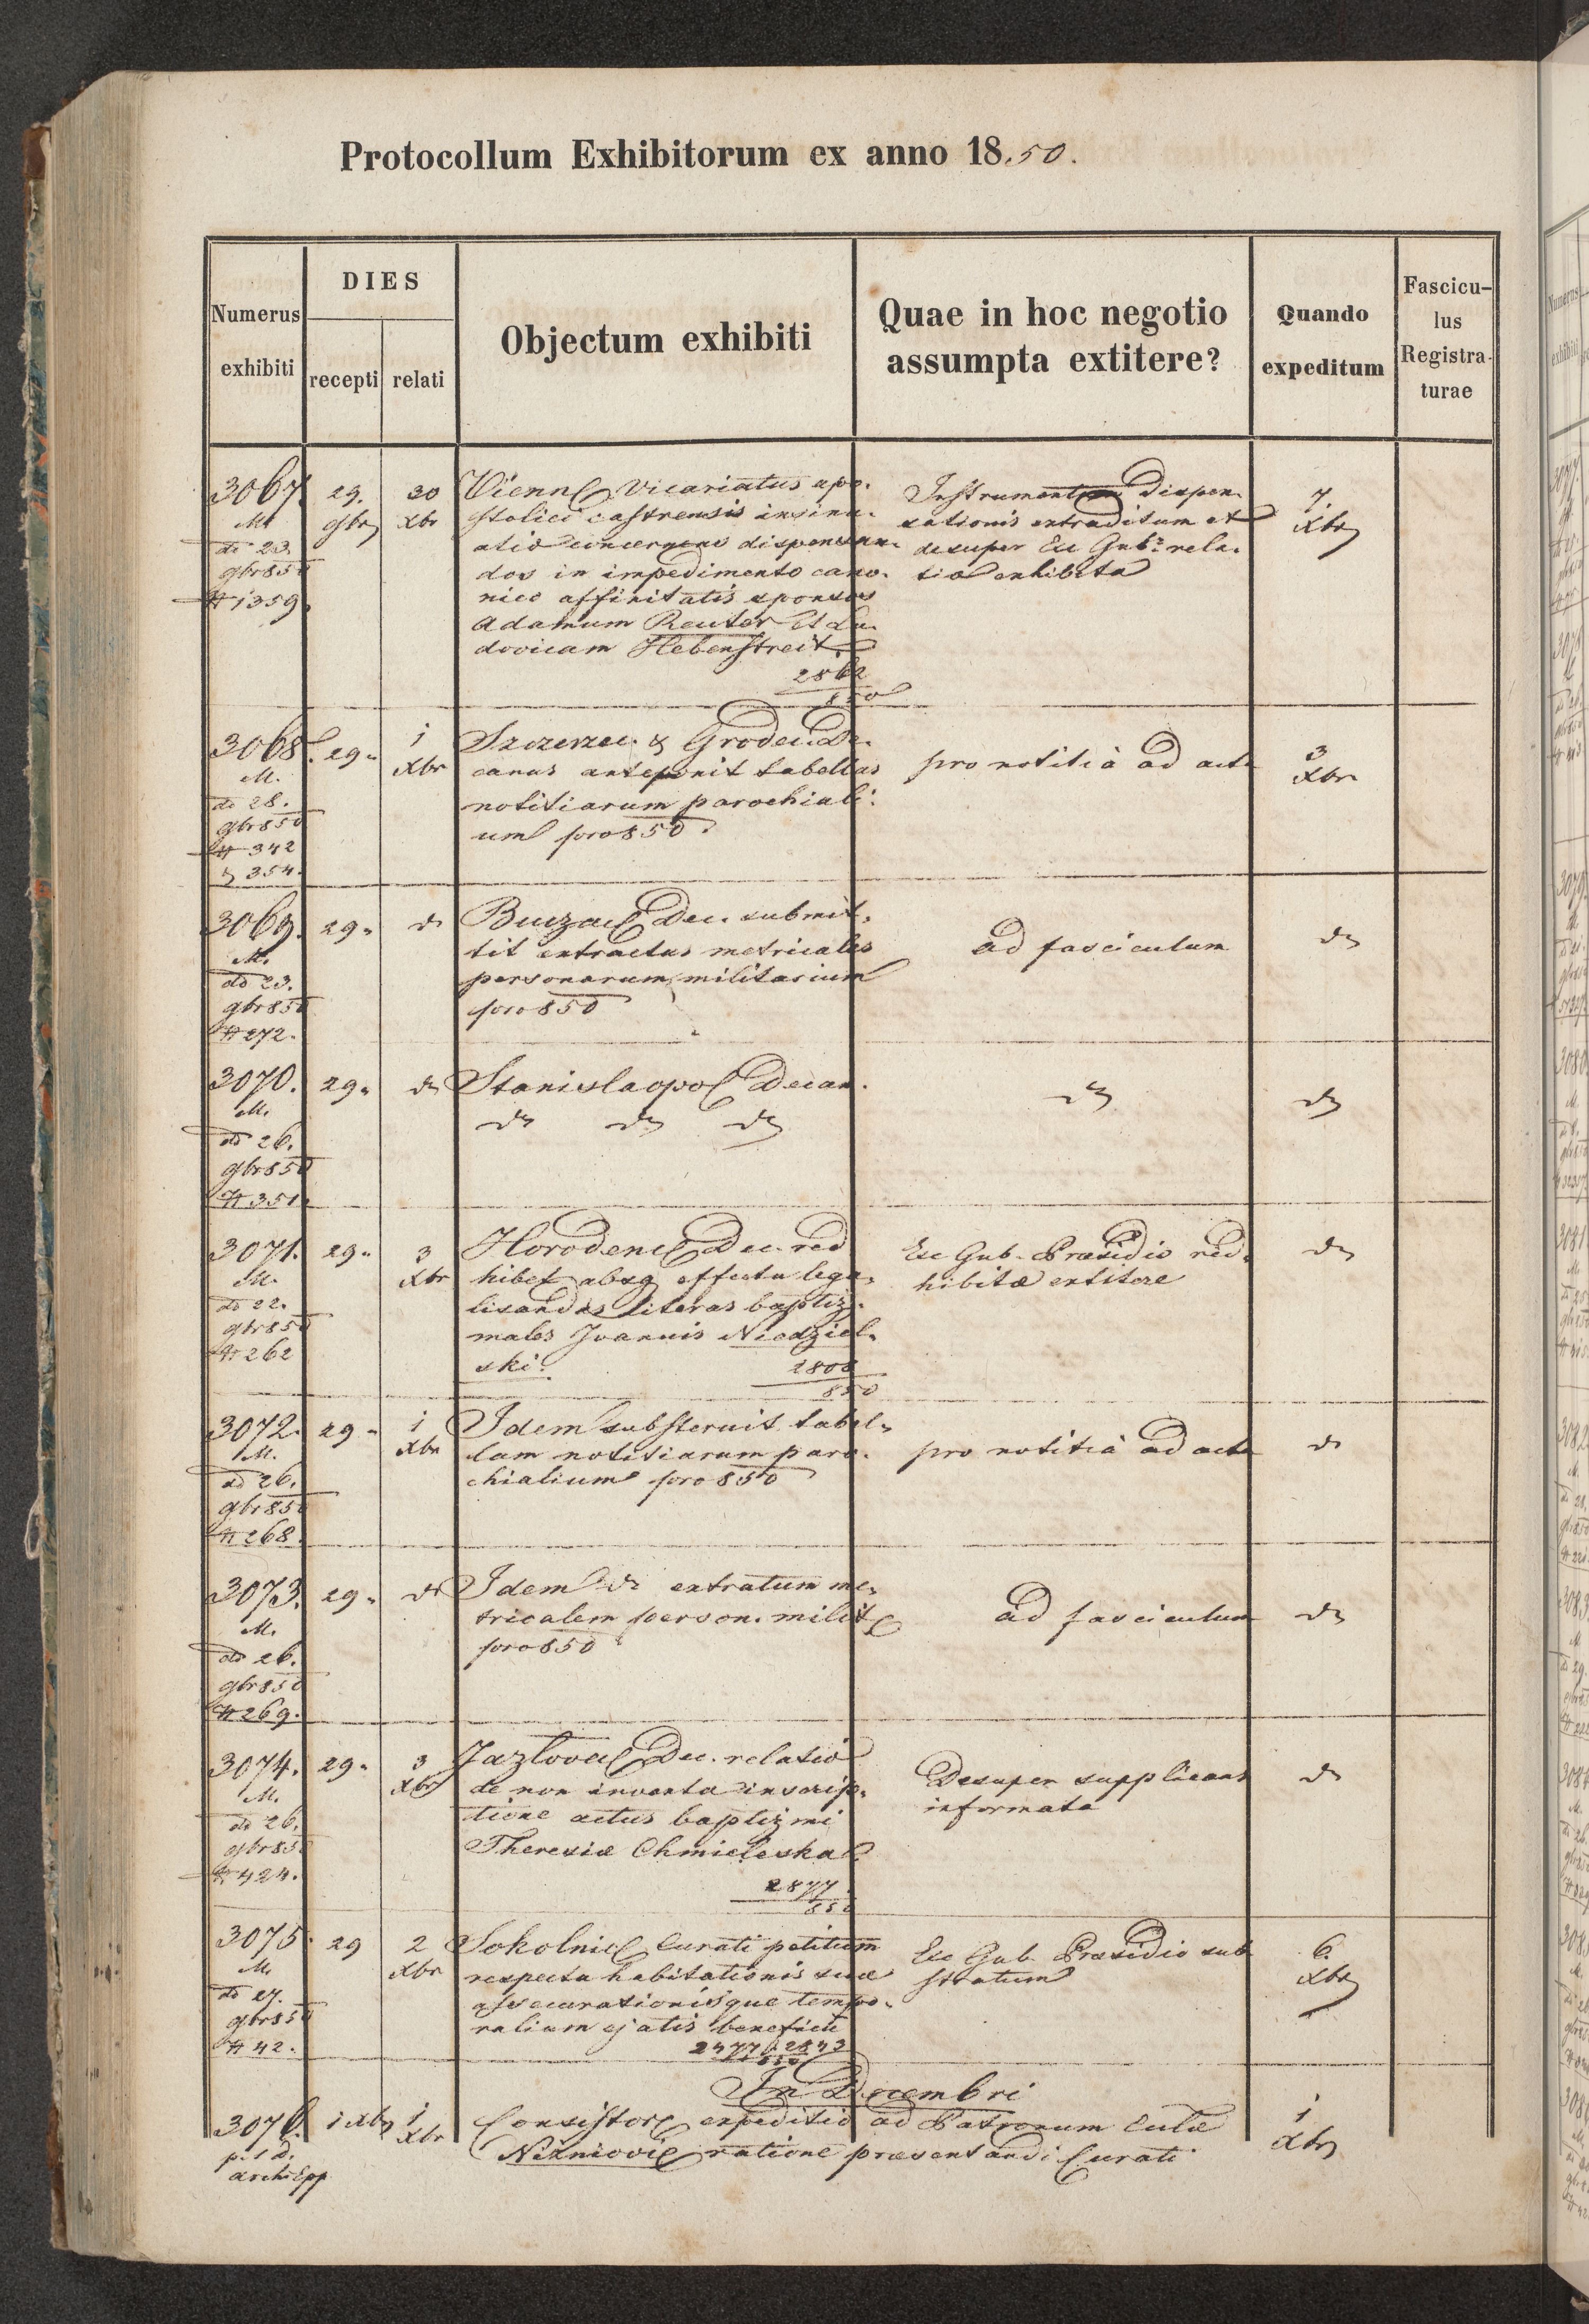 Protocollum Exhibitorum ex anno 18.50.
Numerus exhibiti
DIES
recepti
relati
Objectum exhibiti
Quae in hoc negotio
assumpta extitere?
Quando
expeditum
Fascicu-
lus
Registra-
turae
3067.
M.
dd 23.
gbr 850
# 1359.
29.
gbr
30
Xbr
Vienn Vicariatus apo-
stolici castrensis insinu-
atio concernens dispensan-
dos in impedimento cano-
nico affinitatis sponsos
Adamum Reuter et Lu-
dovicam Hebenstreit.
2862
850
Instrumentum dispen-
sationis extraditum et
desuper Exc Gub. rela-
tio exhibita
7.
Xbr
3068.
M.
dd 28.
gbr 850
# 342
& 354.
29.
1
Xbr
Szczerzec. & Grodec. De-
canus anteponit tabellas
notitiarum parochiali-
um pro 850.
pro notitiâ ad acta
3
Xbr
3069.
M.
dd 23.
gbr 850
# 272.
29.
do
Buczac Dec. submit-
tit extractus metricales
personarum militarium
pro 850
ad fasciculum
do
3070.
M.
dd 26.
gbr 850
# 351.
29.
do
Stanislaopol Decan.
do do do
do
do
3071.
M.
dd 22.
gbr 850
# 262
29.
3
Xbr
Horodenc Dec. red
hibet absq effectu lega-
lisandas literas baptiz-
males Joannis Niedziel-
ski.
2808
850
Exc Gub. Præsidio red-
hibitæ extitere
do
3072.
M.
dd 26.
gbr 850
# 268.
29.
1
Xbr
Idem substernit tabel-
lam notitiarum paro-
chialium pro 850
pro notitiâ ad acta
do
3073.
M.
dd 26.
gbr 850
# 269.
29.
do
Idem do extratum me-
tricalem person. milit
pro 850
ad fasciculum
do
3074.
M.
dd 26.
gbr 850
# 424.
29.
3
Xbr
Jazlovec Dec. relatio
de non inventa inscrip-
tione actus baptizmi
Theresiæ Chmieleska
2877
850
Desuper supplicans
informata
do
3075.
M.
dd 27.
gbr 850
# 42.
29
2
Xbr
Sokolnic Curati petitum
respectu habitationis suæ
assecurationisque tempo-
ralium ejatis beneficii
2477 & 2843
850
Exc Gub. Præsidio sub
stratum
6.
Xbr
In Decembri
3076.
p. t d.
archiEpp
1 Xbr
1
Xbr
Consistor expeditio ad Patronum Eccle
Nizniovie ratione præsentandi Curati
1
Xbr